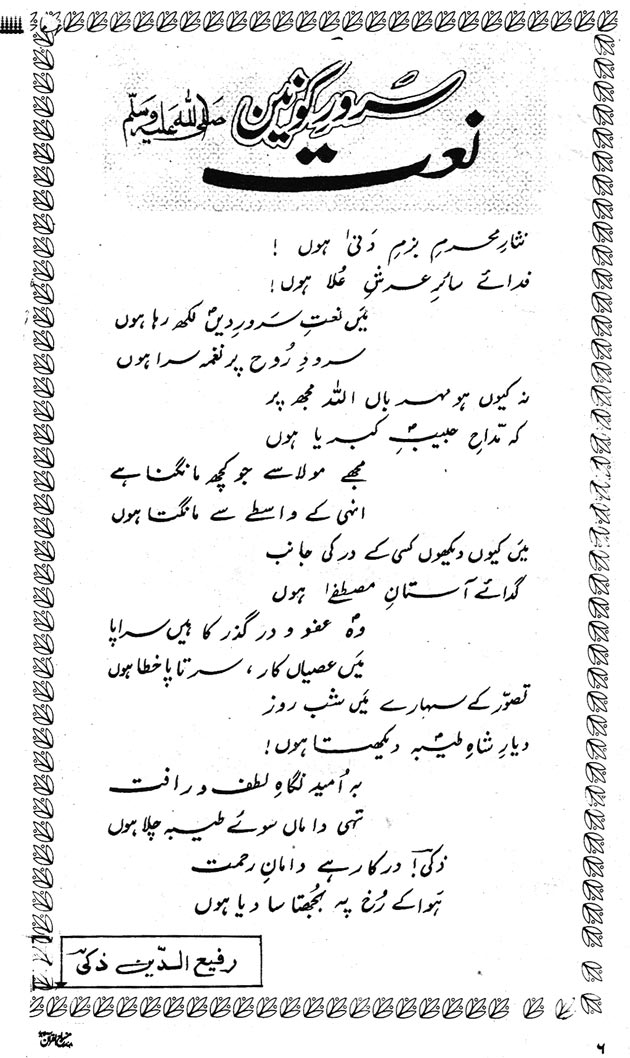 نعت
سرورِ کونین صلی اللہ علیہ وسلم
نثارِ محرمِ بزمِ دَنیٰ ہوں !
فدائے سائرِ عرشِ عُلا ہوں !
مَیں نعتِ سرورِ دیںؐ لکھ رہا ہوں
سرودِ رُوح پر نغمہ سرا ہوں
نہ کیوں ہو مہرباں اللہ مجھ پر
کہ مدّاحِ حبیبِؐ کبریا ہوں
مجھے مولا سے جو کچھ مانگنا ہے
انہی کے واسطے سے مانگتا ہوں
مَیں کیوں دیکھوں کسی کے در کی جانب
گدائے آستانِ مصطفےٰؐ ہوں
وہؐ عفو و درگذر کا ہیں سراپا
مَیں عصیاں کار ، سر تا پا خطا ہوں
تصوّر کے سہارے مَیں شب روز
دیارِ شاہِ طیبہؐ دیکھتا ہوں !
بہ اُمید نگاہِ لطف و رافت
تہی داماں سوئے طیبہ چلا ہوں
ذکیؔ ! درکار ہے دامانِ رحمت
ہَوا کے رُخ پہ بُجھتا سا دیا ہوں
رفیع الدّین ذکیؔ
۶